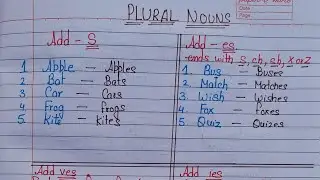 PLURAL NOUNS
Add - S
1 Apple - Apples
2 Bat - Bats
3 Car - Cars
4 Frog - Frogs
5 Kite - Kites
Add - es
ends with s, ch, sh, x or z
1. Bus - Buses
2. Match - Matches
3. Wish - Wishes
4. Fox - Foxes
5. Quiz - Quizes
Add ves
Add ies